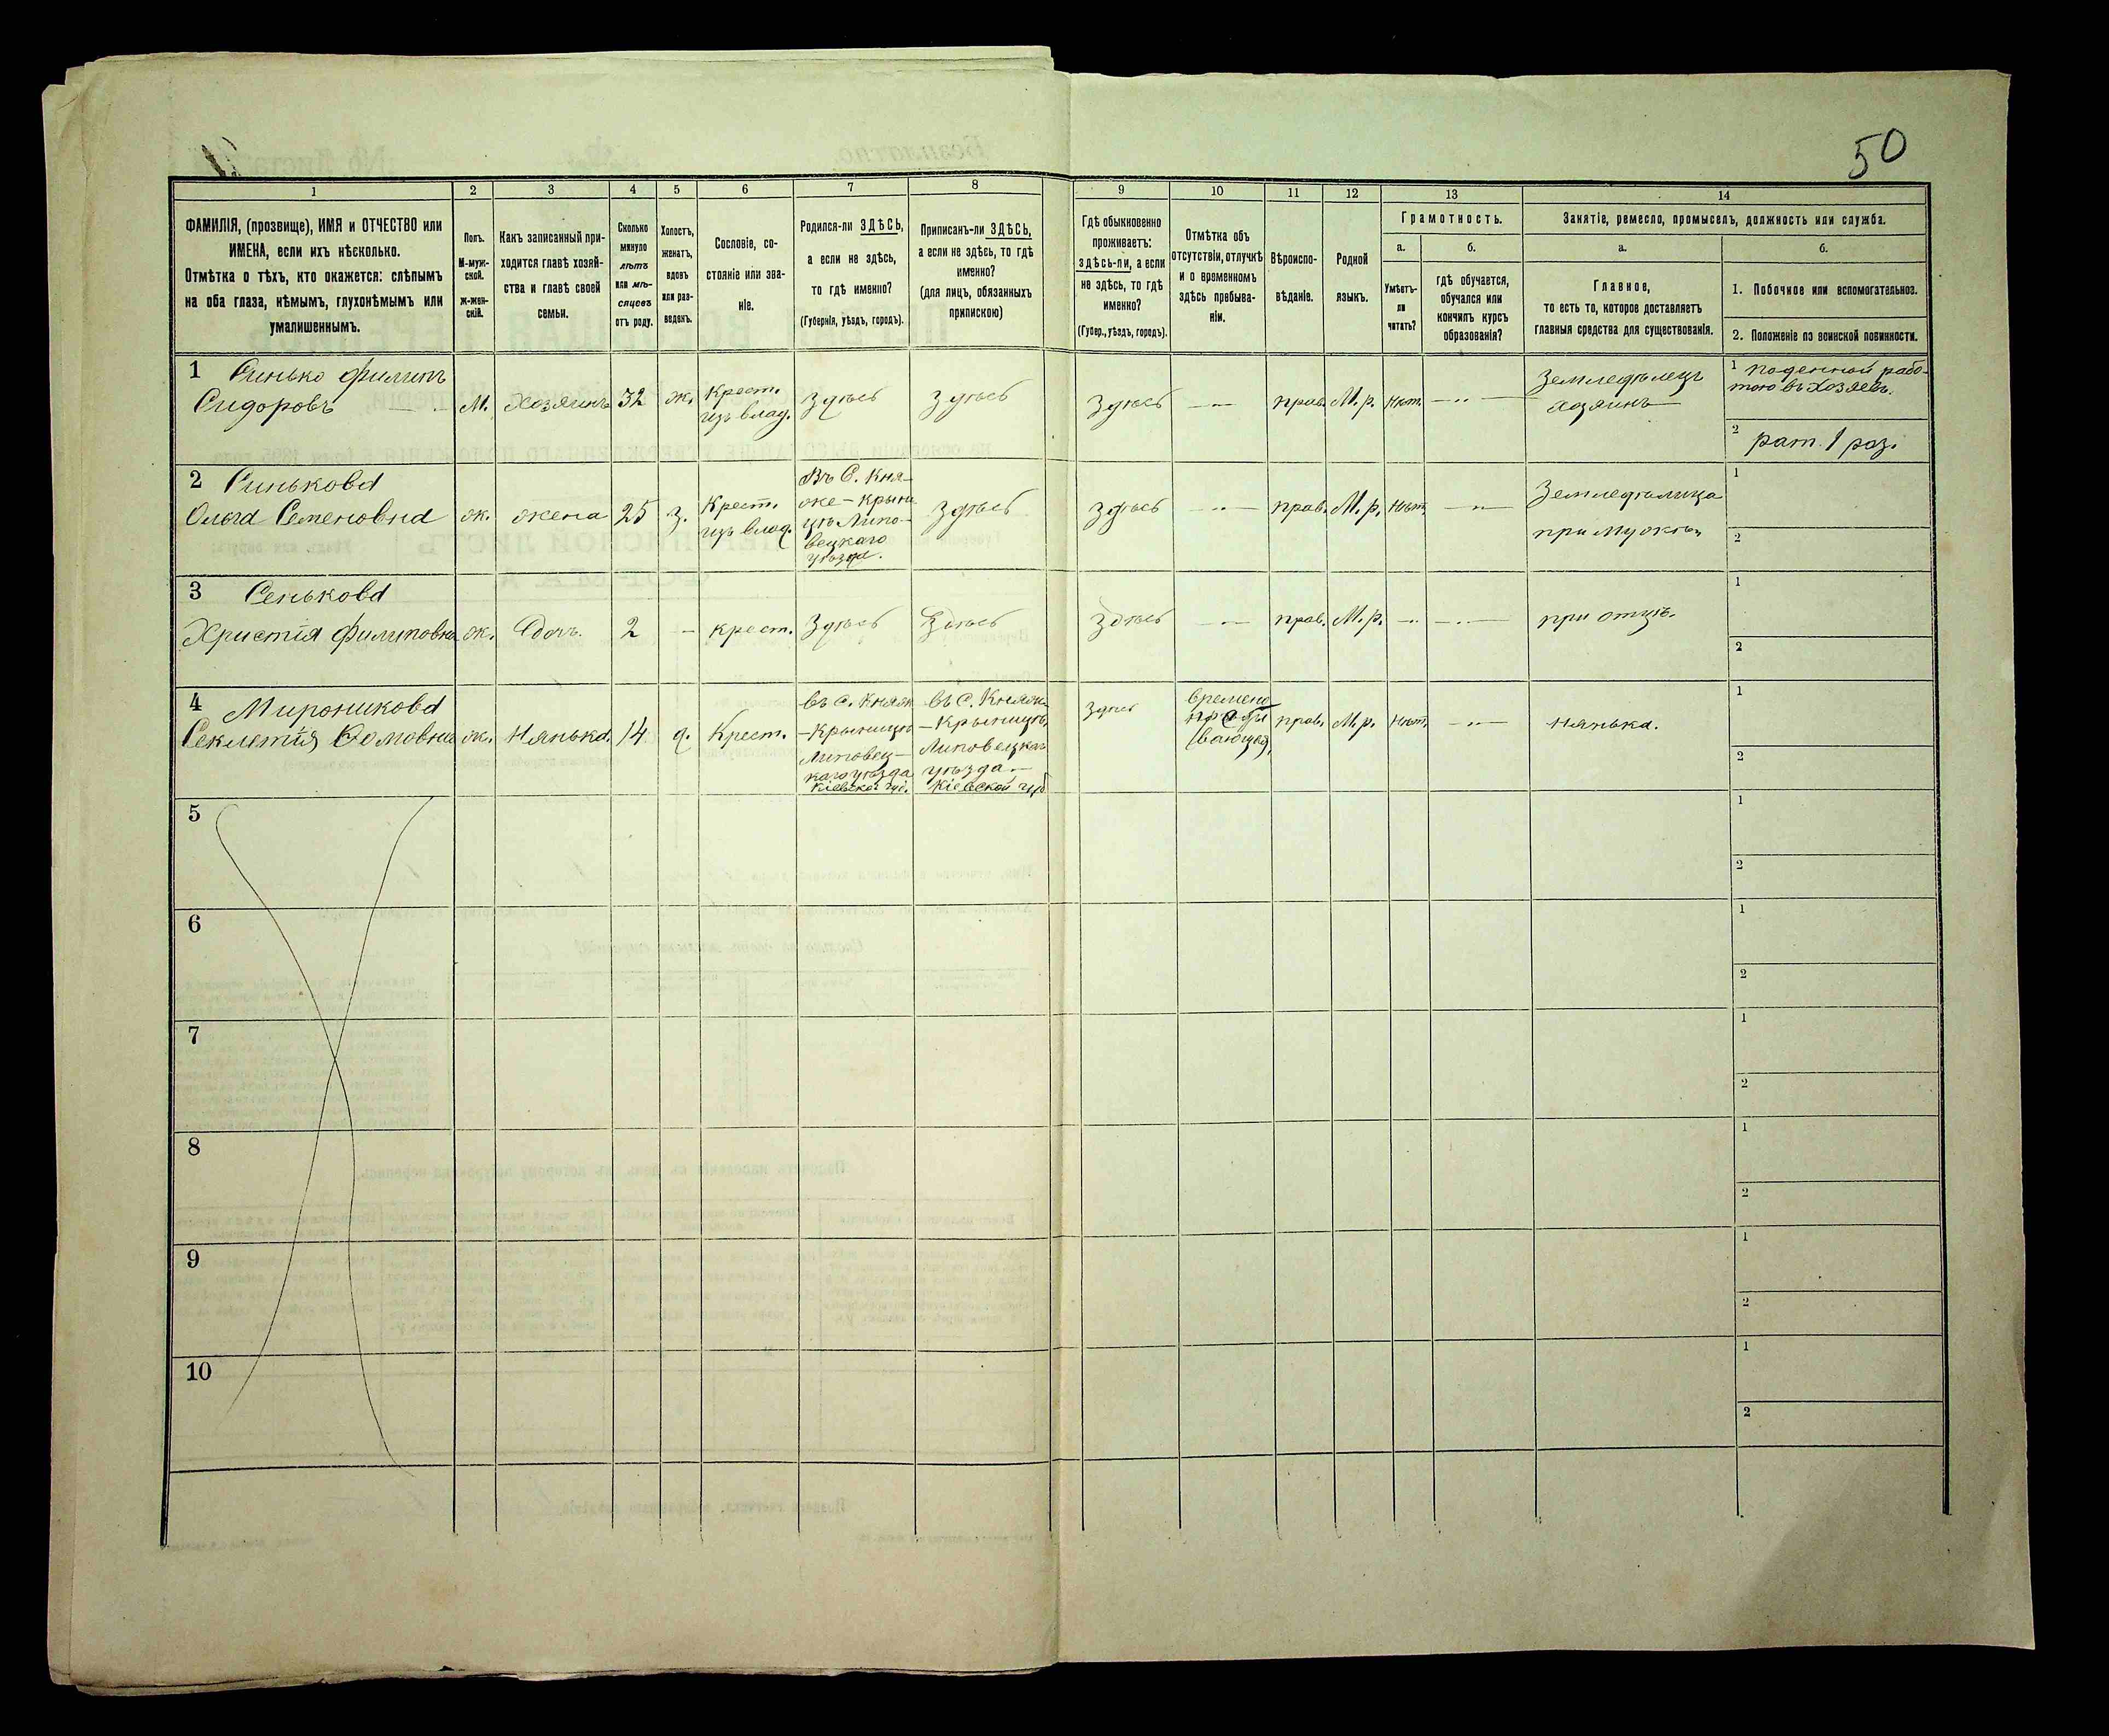 50
1
2
3
4
5
6
7
8
9
10
11
12
13
14
ФАМИЛІЯ, (прозвище), ИМЯ и ОТЧЕСТВО или
ИМЕНА, если ихъ нѣсколько.
Отмѣтка о тѣхъ, кто окажется: слѣпымъ
на оба глаза, нѣмымъ, глухонѣмымъ или
умалишеннымъ.
Полъ.
М-муж-
ской.
ж-жен-
скій.
Какъ записанный при-
ходится главѣ хозяй-
ства и главѣ своей
семьи.
Сколько
минуло
лѣтъ
или мѣ-
сяцевъ
отъ роду.
Холостъ,
женатъ,
вдовъ
или раз-
веденъ.
Сословіе, со-
стояніе или зва-
ніе.
Родился-ли ЗДѢСЬ,
а если не здѣсь,
то гдѣ именно?
(Губернія, уѣздъ, городъ).
Приписанъ-ли ЗДѢСЬ,
а если не здѣсь, то гдѣ
именно?
(для лицъ, обязанныхъ
припискою)
Гдѣ обыкновенно
проживаетъ:
здѣсь-ли, а если
не здѣсь, то гдѣ
именно?
(Губер., уѣздъ, городъ).
Отмѣтка объ
отсутствіи, отлучкѣ
и о временномъ
здѣсь пребыва-
ніи.
Вѣроиспо-
вѣданіе.
Родной
языкъ.
Грамотность.
а.
б.
Умѣетъ-
ли
читать?
гдѣ обучается,
обучался или
кончилъ курсъ
образованія?
Занятіе, ремесло, промыселъ, должность или служба.
а.
б.
Главное,
то есть то, которое доставляетъ
главныя средства для существованія.
1. Побочное или вспомогательное.
2. Положеніе по воинской повинности.
1 Синько Филипъ
Сидоровъ
М.
Хозяинъ
32
ж.
Крест.
изъ влад.
здѣсь
здѣсь
здѣсь
— " —
прав.
М. р.
нѣт.
— " —
Земледѣлецъ
хозяинъ
1 поденной рабо-
тою въ хозяевъ.
2 рат. 1 раз.
2 Синькова
Ольга Семеновна
ж.
жена
25
з.
Крест.
изъ влад.
Въ С. Кня-
же-Крыни
цѣ Липо-
вецкаго
уѣзда.
здѣсь
здѣсь
— " —
прав.
М. р.
нѣт.
— " —
Земледѣлица
при мужѣ
1
2
3 Сенькова
Христія Филиповна
ж.
Дочь.
2
—
крест.
Здѣсь
Здѣсь
здѣсь
— " —
прав.
М. р.
— " —
— " —
при отцѣ.
1
2
4 Мироникова
Секлетія Фомовна
ж.
Нянька.
14
д.
Крест.
въ с. Княж
-Крыницѣ
Липовец-
каго уѣзда
Кіевской губ.
въ С. Княж
-Крыницѣ
Липовецкаго
уѣзда —
Кіевской губ
здѣсь
времено
вающая
прав.
М. р.
нѣт.
— " —
нянька.
1
2
5
1
2
6
1
2
7
1
2
8
1
2
9
1
2
10
1
2